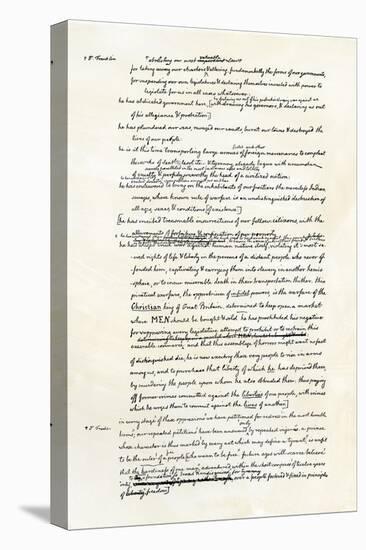 * Dr. Franklin
abolishing our most ~~important~~ valuable laws
for taking away our charters & altering fundamentally the forms of our governments,
for suspending our own legislatures & declaring themselves invested with power to
legislate for us in all cases whatsoever.
he has abdicated government here, [withdrawing his governors, & declaring us out
of his allegiance & protection]
he has plundered our seas, ravaged our coasts, burnt our towns & destroyed the
lives of our people.
he is at this time transporting large armies of foreign mercenaries to compleat
the works of death, desolation & tyranny, already begun with circumstances
of cruelty & perfidy unworthy the head of a civilized nation.
he has endeavored to bring on the inhabitants of our frontiers the merciless Indian
savages, whose known rule of warfare is an undistinguished destruction of
all ages, sexes, & conditions [of existence]
[he has incited treasonable insurrections of our fellow citizens, with the
allurements of forfeiture & confiscation of our property.
he has waged cruel war against human nature itself, violating it's most sa-
cred rights of life & liberty in the persons of a distant people who never of-
fended him, captivating & carrying them into slavery in another hemi-
sphere, or to incur miserable death in their transportation thither. this
piratical warfare, the opprobrium of infidel powers, is the warfare of the
Christian king of Great Britain. determined to keep open a market
where MEN should be bought & sold he has prostituted his negative
for suppressing every legislative attempt to prohibit or to restrain this
execrable commerce: and that this assemblage of horrors might want no fact
of distinguished die, he is now exciting those very people to rise in arms
among us, and to purchase that liberty of which he has deprived them,
by murdering the people upon whom he also obtruded them; thus paying
off former crimes committed against the liberties of one people, with crimes
which he urges them to commit against the lives of another]
in every stage of these oppressions we have petitioned for redress in the most humble
* Dr. Franklin
terms; our repeated petitions have been answered only by repeated injuries. a prince
whose character is thus marked by every act which may define a tyrant, is unfit
to be the ruler of a people [who mean to be free. future ages will scarce believe
that the hardiness of one man, adventured within the short compass of twelve years
over a people fostered & fixed in principles
of freedom]